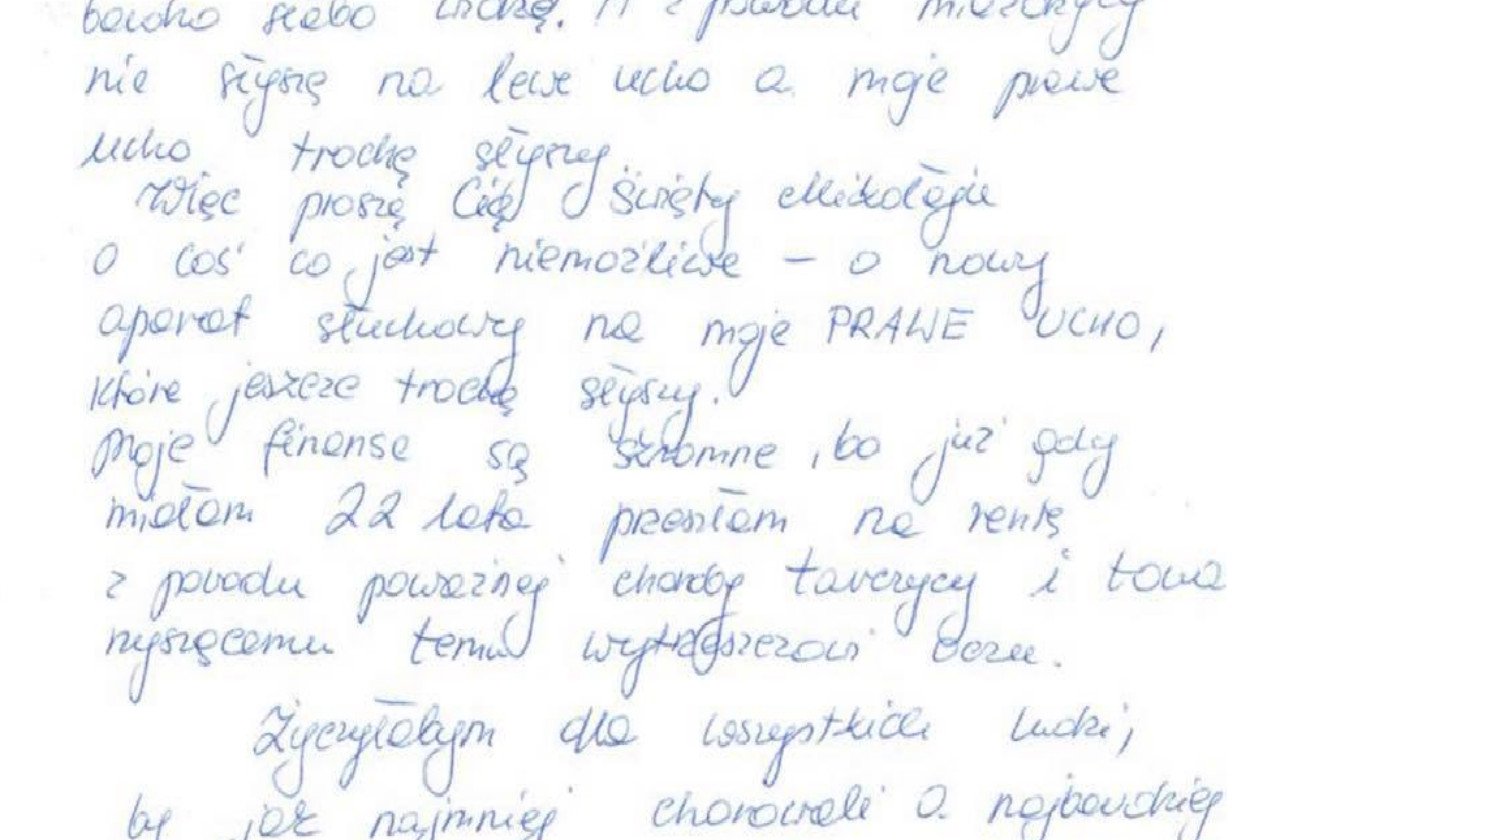 bardzo słabo widzę. A z powodu miażdżycy
nie słyszę na lewe ucho a moje prawe
ucho trochę słyszy.
Więc proszę Cię Święty Mikołaju
o coś co jest niemożliwe – o nowy
aparat słuchowy na moje PRAWE UCHO,
które jeszcze trochę słyszy.
Moje finanse są skromne, bo już gdy
miałam 22 lata przeszłam na rentę
z powodu poważnej choroby tarczycy i towa
rzyszącemu temu wytrzeszczowi oczu.
Życzyłabym dla wszystkich ludzi,
by jak najmniej chorowali a najbardziej